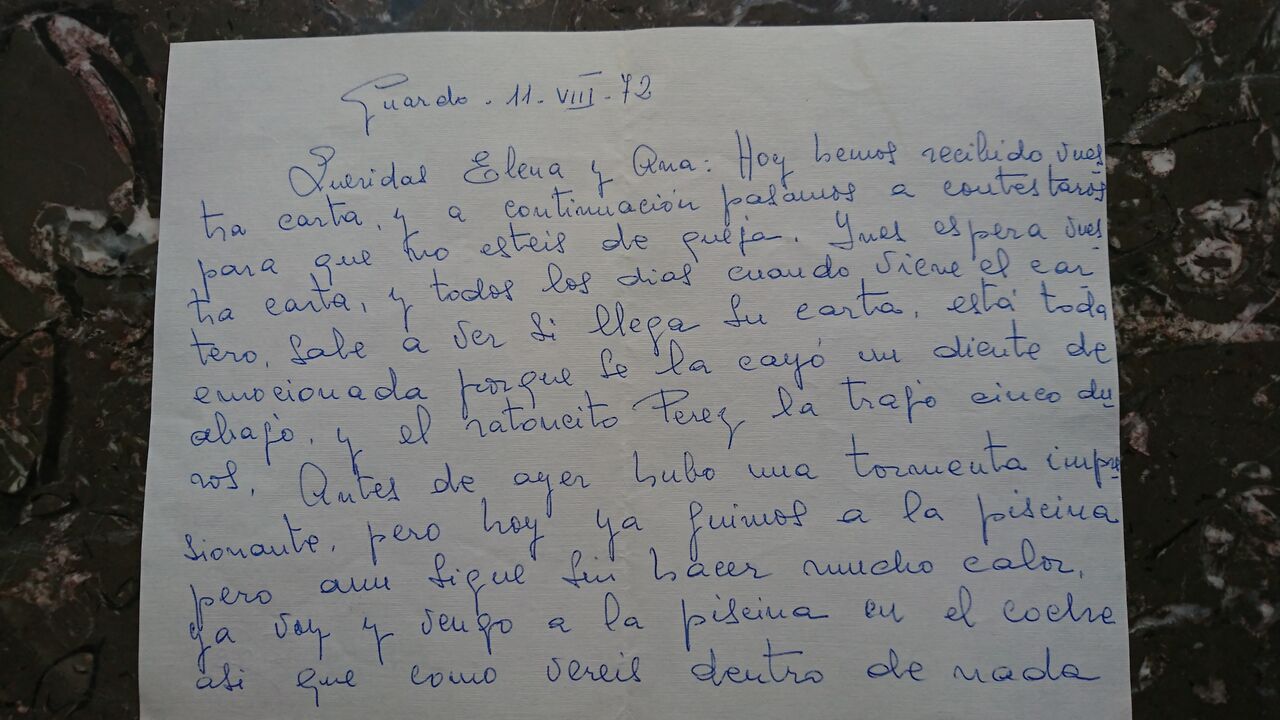 Guardo. 11-VIII-72
Queridas Elena y Ana: Hoy hemos recibido vues
tra carta, y a continuación pasamos a contestaros
para que no esteis de queja. Ynes espera vues
tra carta, y todos los dias cuando viene el car
tero, sale a ver si llega su carta, está toda
emocionada porque se la cayó un diente de
abajo, y el ratoncito Perez la trajo cinco du
ros. Antes de ayer hubo una tormenta impre
sionante, pero hoy ya fuimos a la piscina
pero aun sigue sin hacer mucho calor,
ya voy y vengo a la piscina en el coche
asi que como vereis dentro de nada